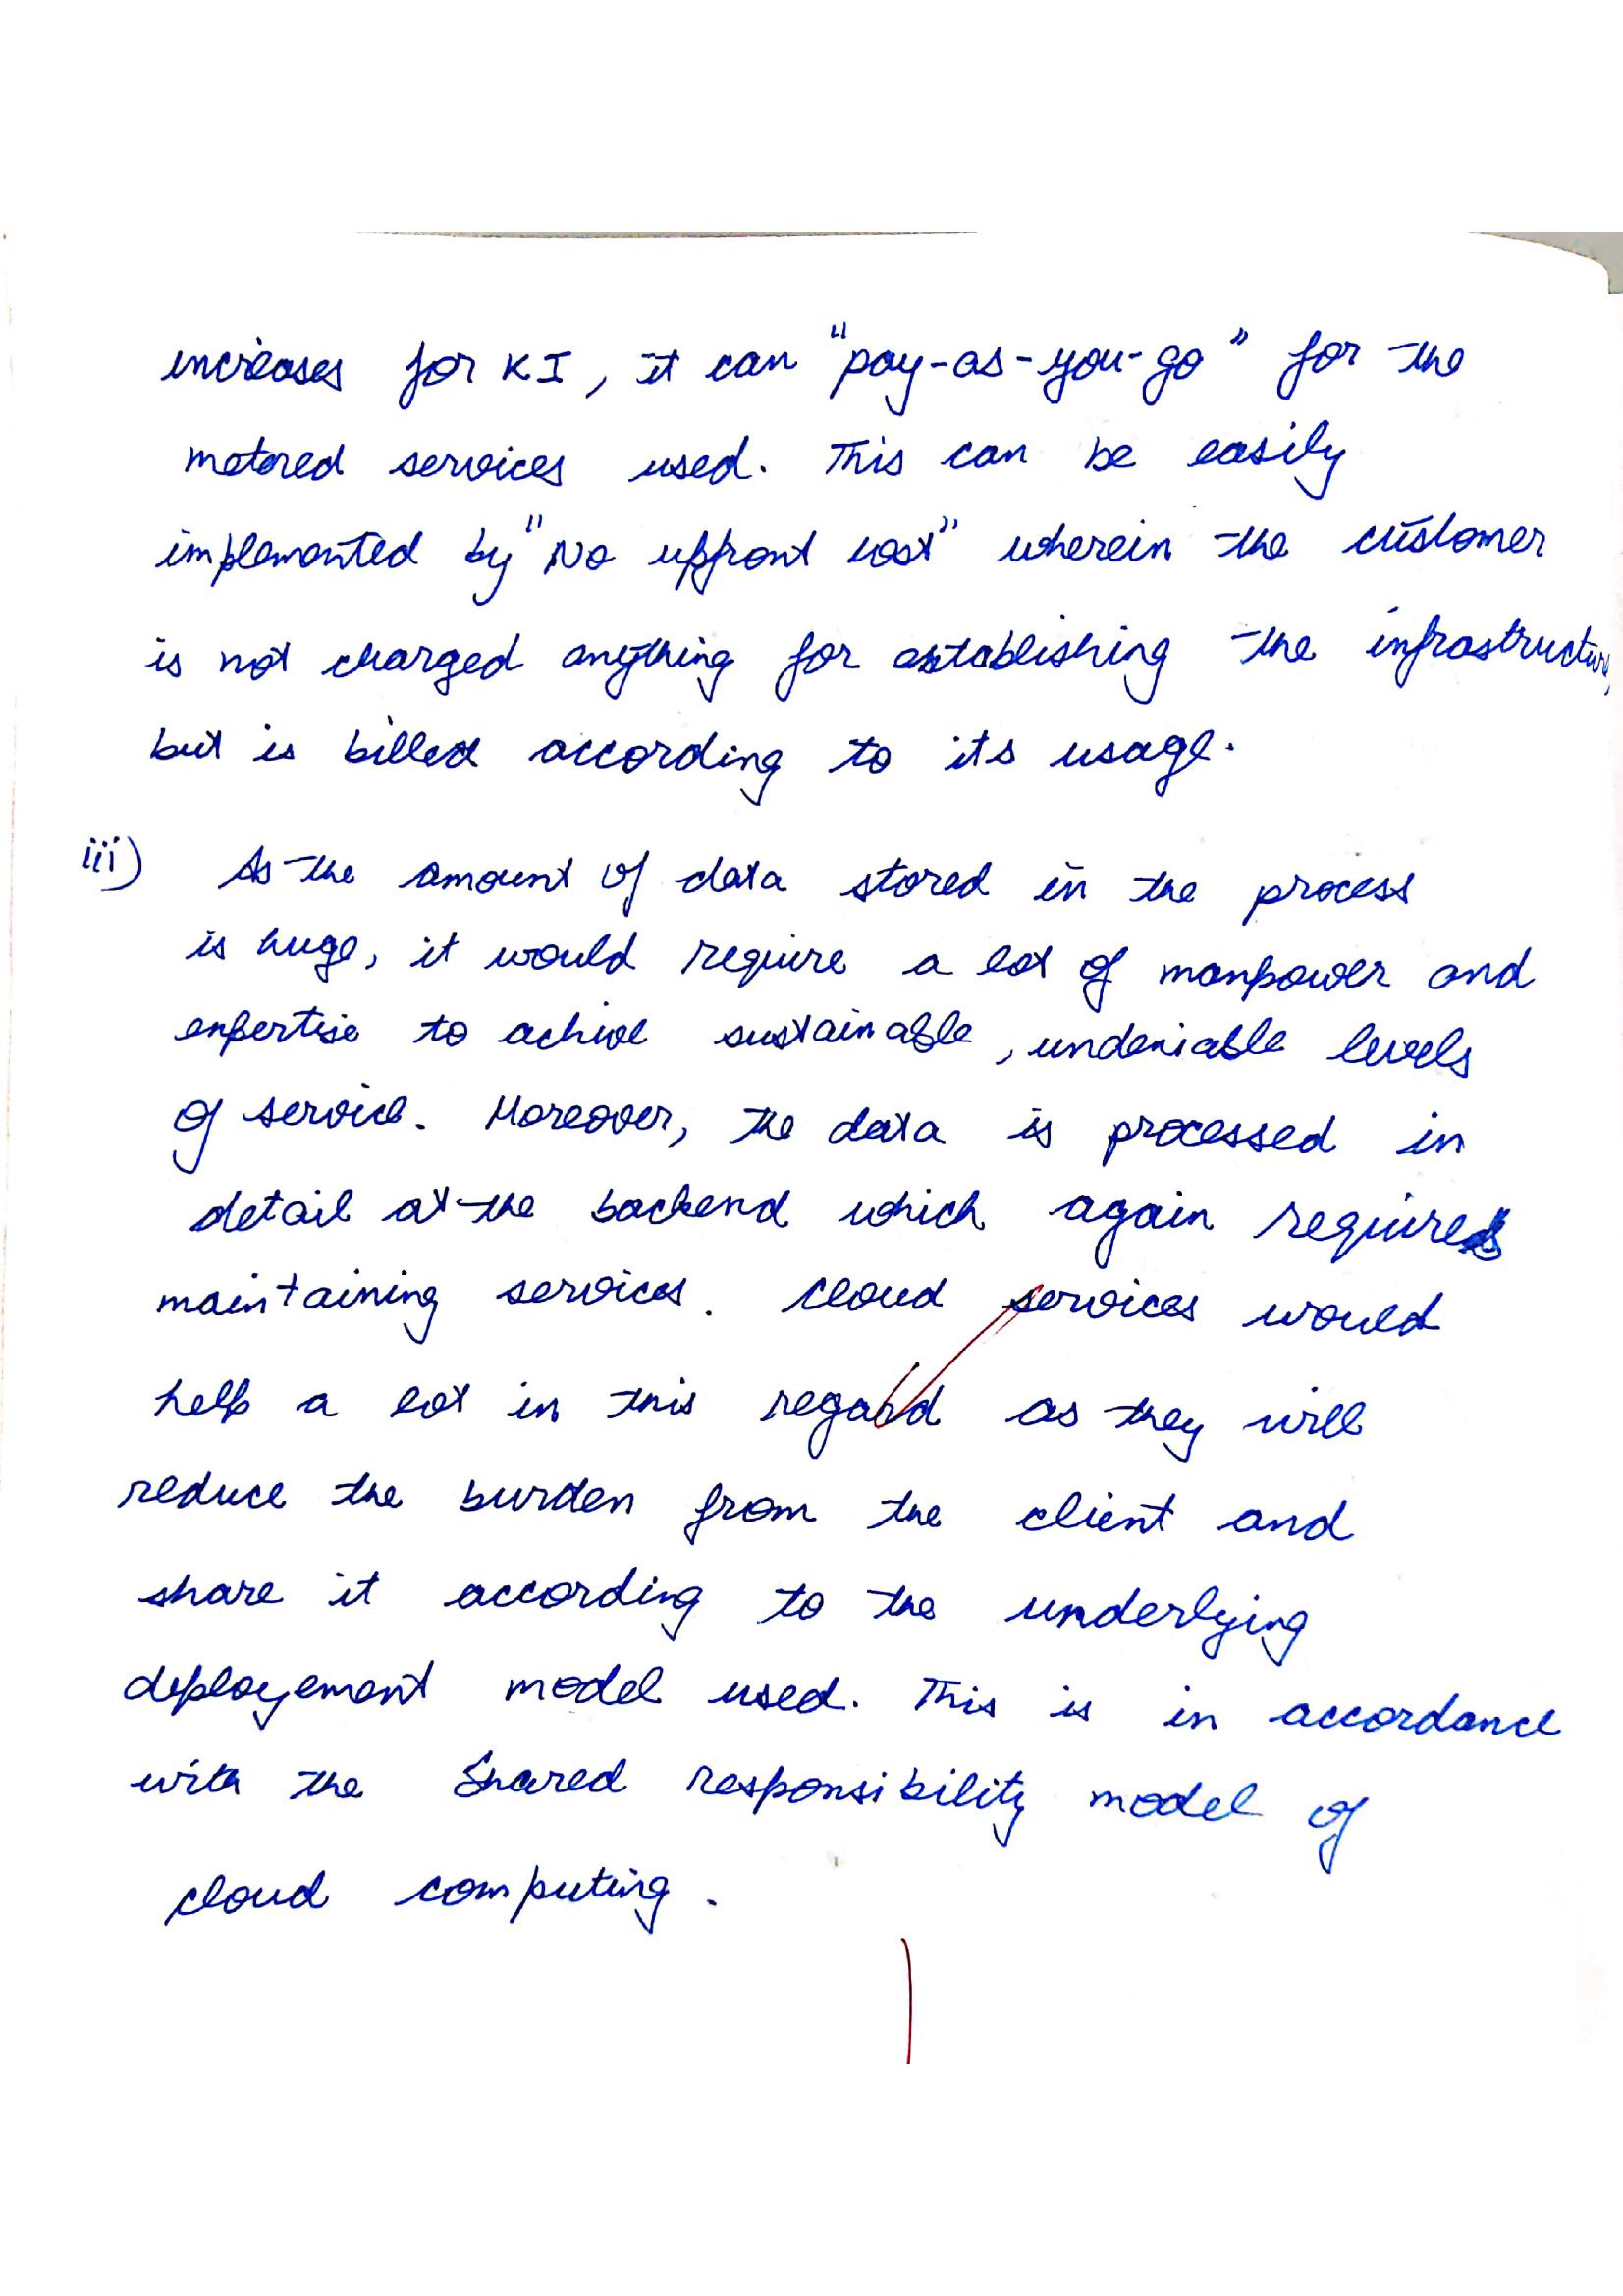 increases for KI, it can "pay-as-you-go" for the
metered services used. This can be easily
implemented by "No upfront cost" wherein the customer
is not charged anything for establishing the infrastructure,
but is billed according to its usage.
iii) As the amount of data stored in the process
is huge, it would require a lot of manpower and
expertise to achive sustainable, undeniable levels
of service. Moreover, the data is processed in
detail at the backend which again requires
maintaining services. Cloud services would
help a lot in this regard as they will
reduce the burden from the client and
share it according to the underlying
deployement model used. This is in accordance
with the Shared responsibility model of
cloud computing.